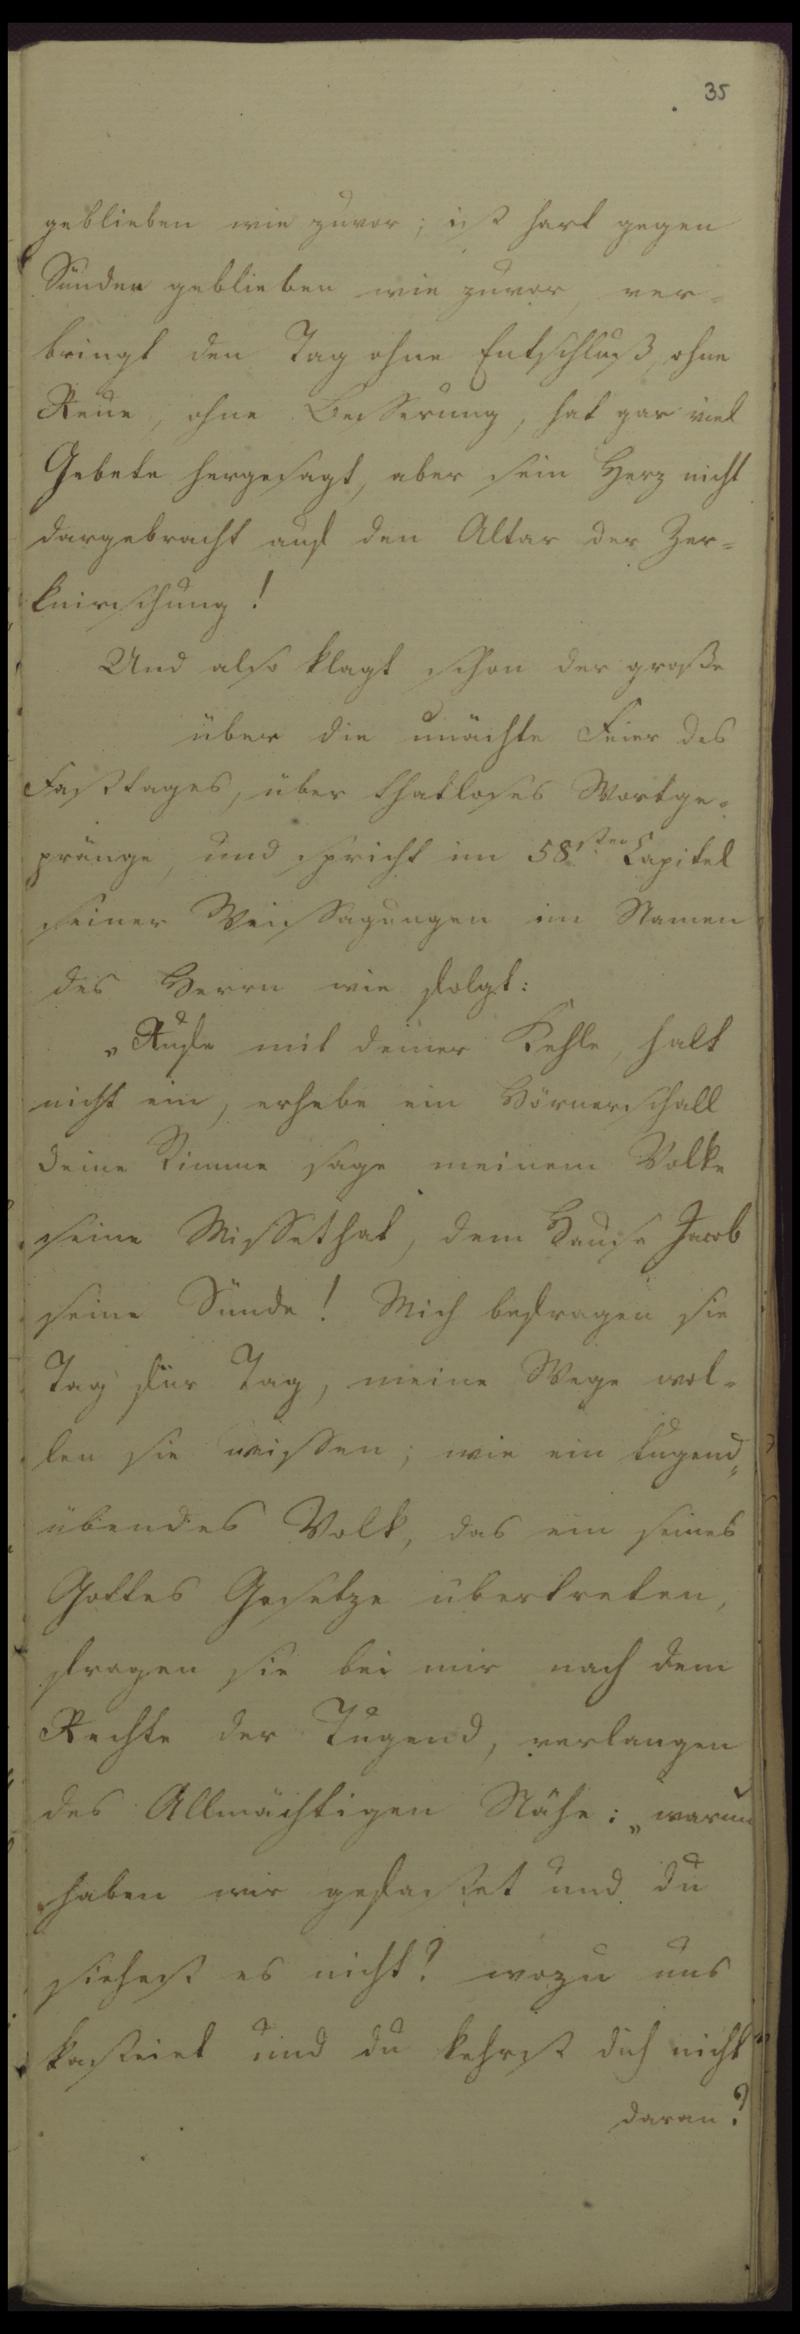 35
geblieben wie zuvor; ist hart gegen
Sünden geblieben wie zuvor, ver-
bringt den Tag ohne Entschluß, ohne
Reue, ohne Besserung, hat gar viel
Gebete hergesagt, aber sein Herz nicht
dargebracht auf den Altar der Zer-
knirschung!
Und also klagt schon der große
über die unächte Feier des
Fasttages, über thatloses Wortge-
pränge, und spricht im 58sten Capitel
seiner Weissagungen im Namen
des Herrn wie folgt:
„Rufe mit deiner Kehle, halt
nicht ein, erhebe ein Hörnerschall
deine Stimme sage meinem Volke
seine Missethat, dem Hause Jacob
seine Sünde! Mich befragen sie
Tag für Tag, meine Wege wol-
len sie wissen; wie ein tugend-
übendes Volk, das ein seines
Gottes Gesetze übertreten,
fragen sie bei mir nach dem
Rechte der Tugend, verlangen
des Allmächtigen Nähe: „warum
haben wir gefastet und du
siehest es nicht? wozu uns
kasteiet und du kehrst dich nicht
daran?